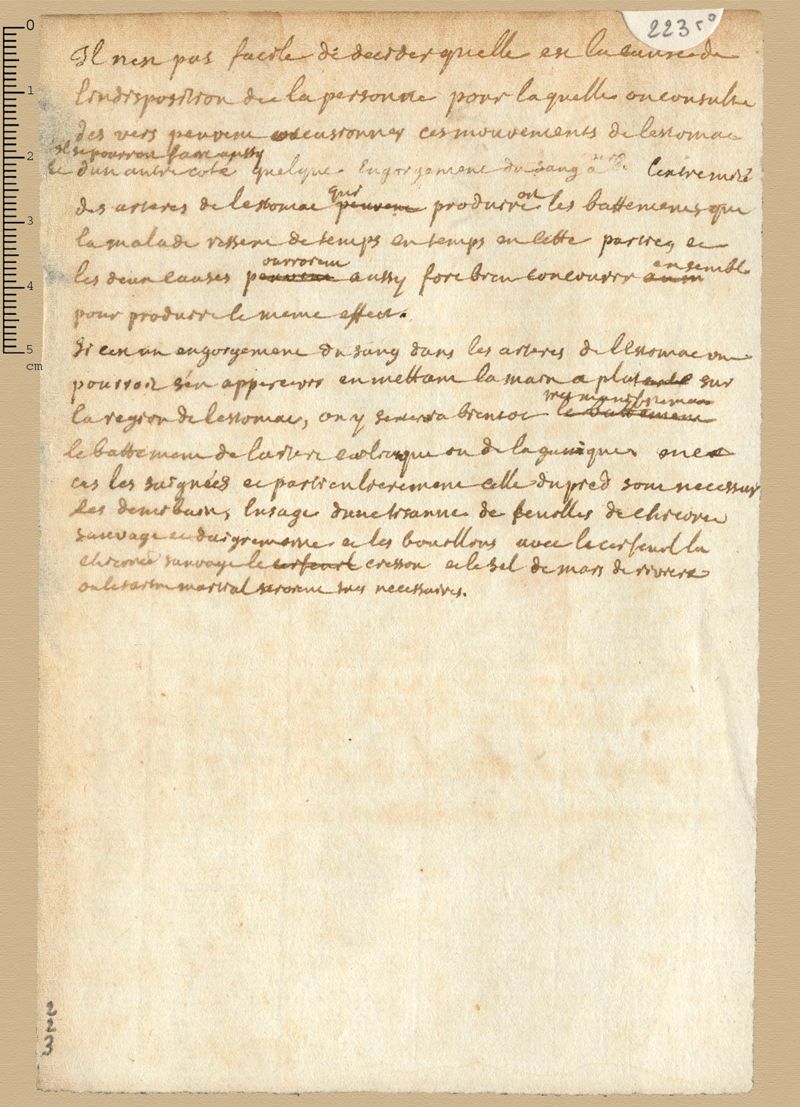 223 r°
Il nest pas facile de decider quelle est la cause de
lindisposition de la personne pour laquelle on consulte
des vers peuvent occasionner ces mouvements de lestomac
il se pourroit faire aussy
et dun autre coté quelque engorgement du sang a lextremité
des arteres de lestomac qui peuvent produire les battements que
la malade ressent de temps en temps en cette partie, et
les deux causes pourroient aussy fort bien concourir ensemble
pour produire le meme effect.
Si cest un engorgement du sang dans les arteres de lestomac on
pourroit sen appercevoir en mettant la main a plat sur
la region de lestomac, on y sentira bientot tres manifestement
le battement de lartere coeliaque ou de la gastrique en ce
cas les saignées et particulierement celle du pied sont necessaires
les demi bains, lusage dune tisanne de feuilles de chicorée
sauvage et daigremoine et les bouillons avec le cerfeuil la
chicorée sauvage le cerfeuil cresson et le sel de mars de riviere
ou le tartre martial seroient tres necessaires.
223
0
1
2
3
4
5
cm